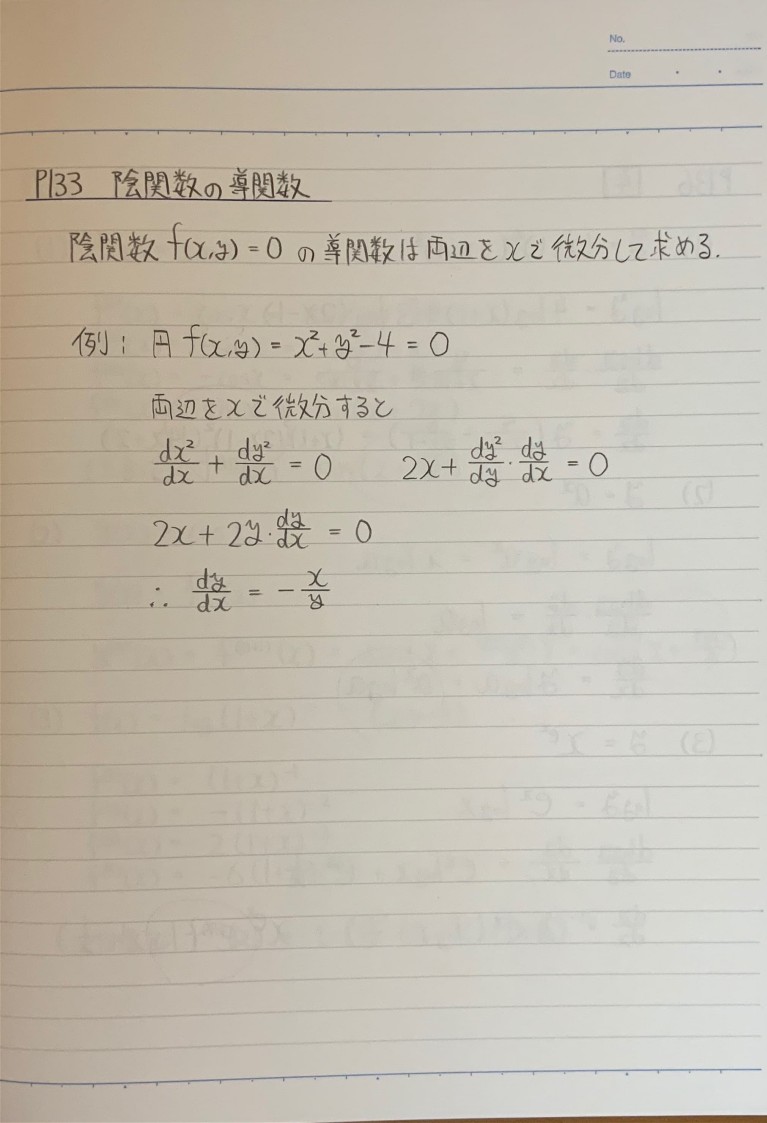 No.
Date
P133 陰関数の導関数
陰関数 f(x,y) = 0 の導関数は両辺をxで微分して求める.
例: 円 f(x,y) = x²+y²-4 = 0
両辺をxで微分すると
dx²/dx + dy²/dx = 0  2x + dy²/dy・dy/dx = 0
2x + 2y・dy/dx = 0
∴ dy/dx = -x/y